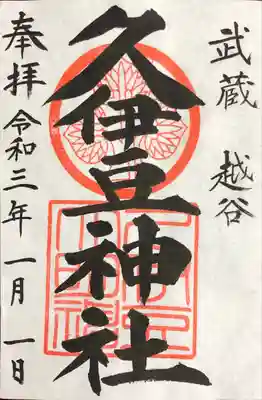 武蔵 越谷
久伊豆神社
奉拝 令和三年 一月 一日